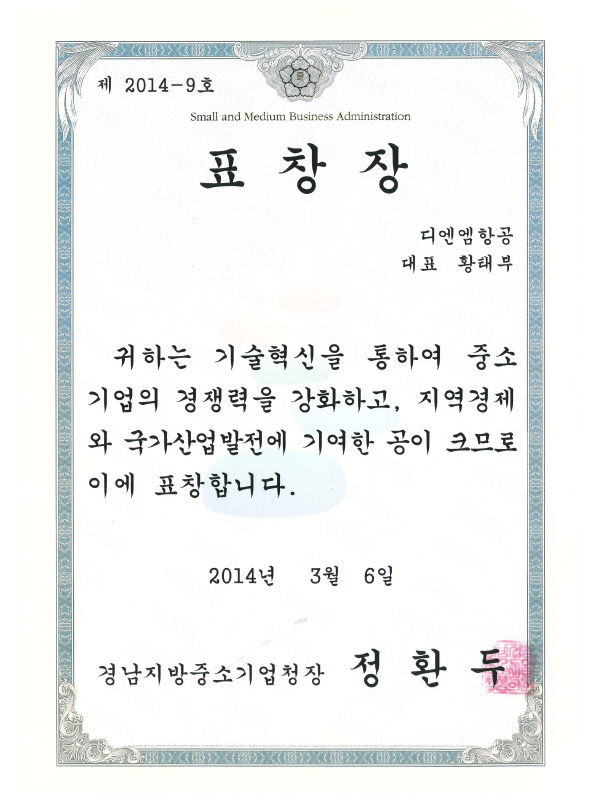 제 2014-9호
Small and Medium Business Administration
표 창 장
디엔엠항공
대표 황태부
귀하는 기술혁신을 통하여 중소
기업의 경쟁력을 강화하고, 지역경제
와 국가산업발전에 기여한 공이 크므로
이에 표창합니다.
2014년 3월 6일
경남지방중소기업청장 정 환 두